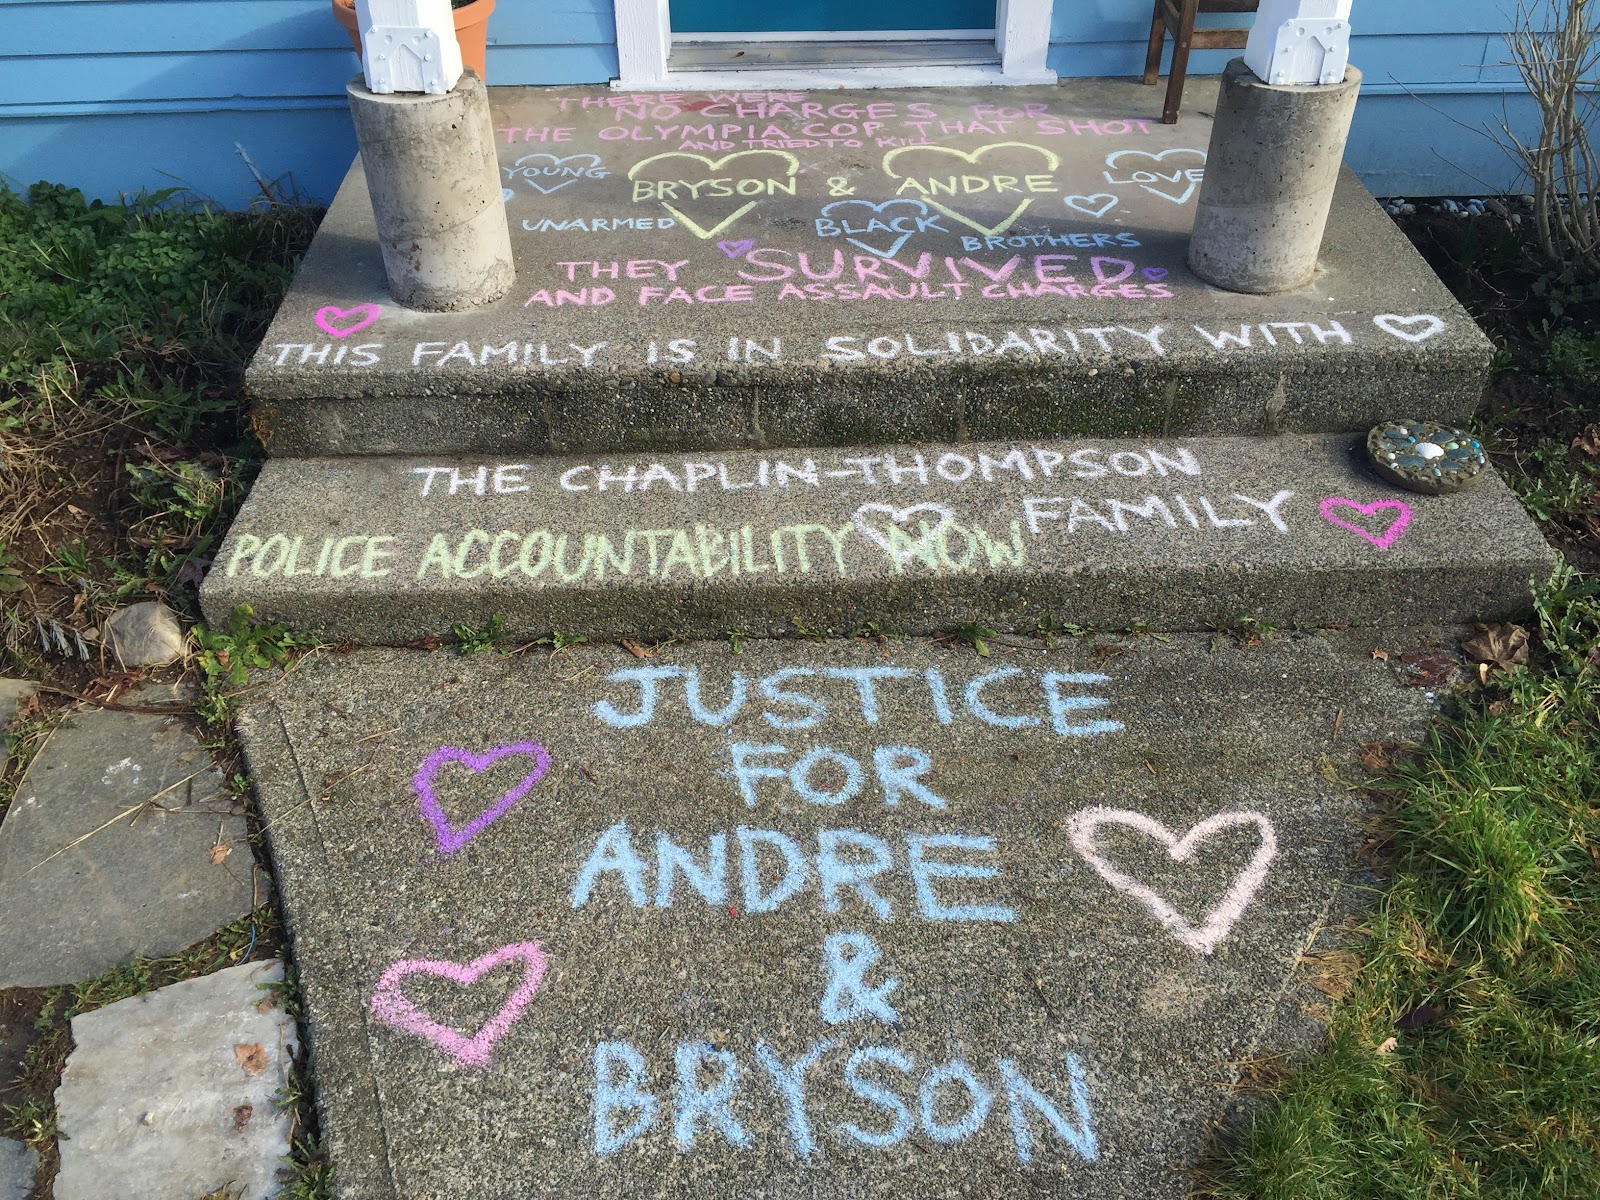 THERE WERE
NO CHARGES FOR
THE OLYMPIA COP THAT SHOT
AND TRIED TO KILL
YOUNG BRYSON & ANDRE LOVE
UNARMED BLACK BROTHERS
THEY SURVIVED
AND FACE ASSAULT CHARGES
THIS FAMILY IS IN SOLIDARITY WITH
THE CHAPLIN-THOMPSON
FAMILY
POLICE ACCOUNTABILITY NOW
JUSTICE
FOR
ANDRE
&
BRYSON